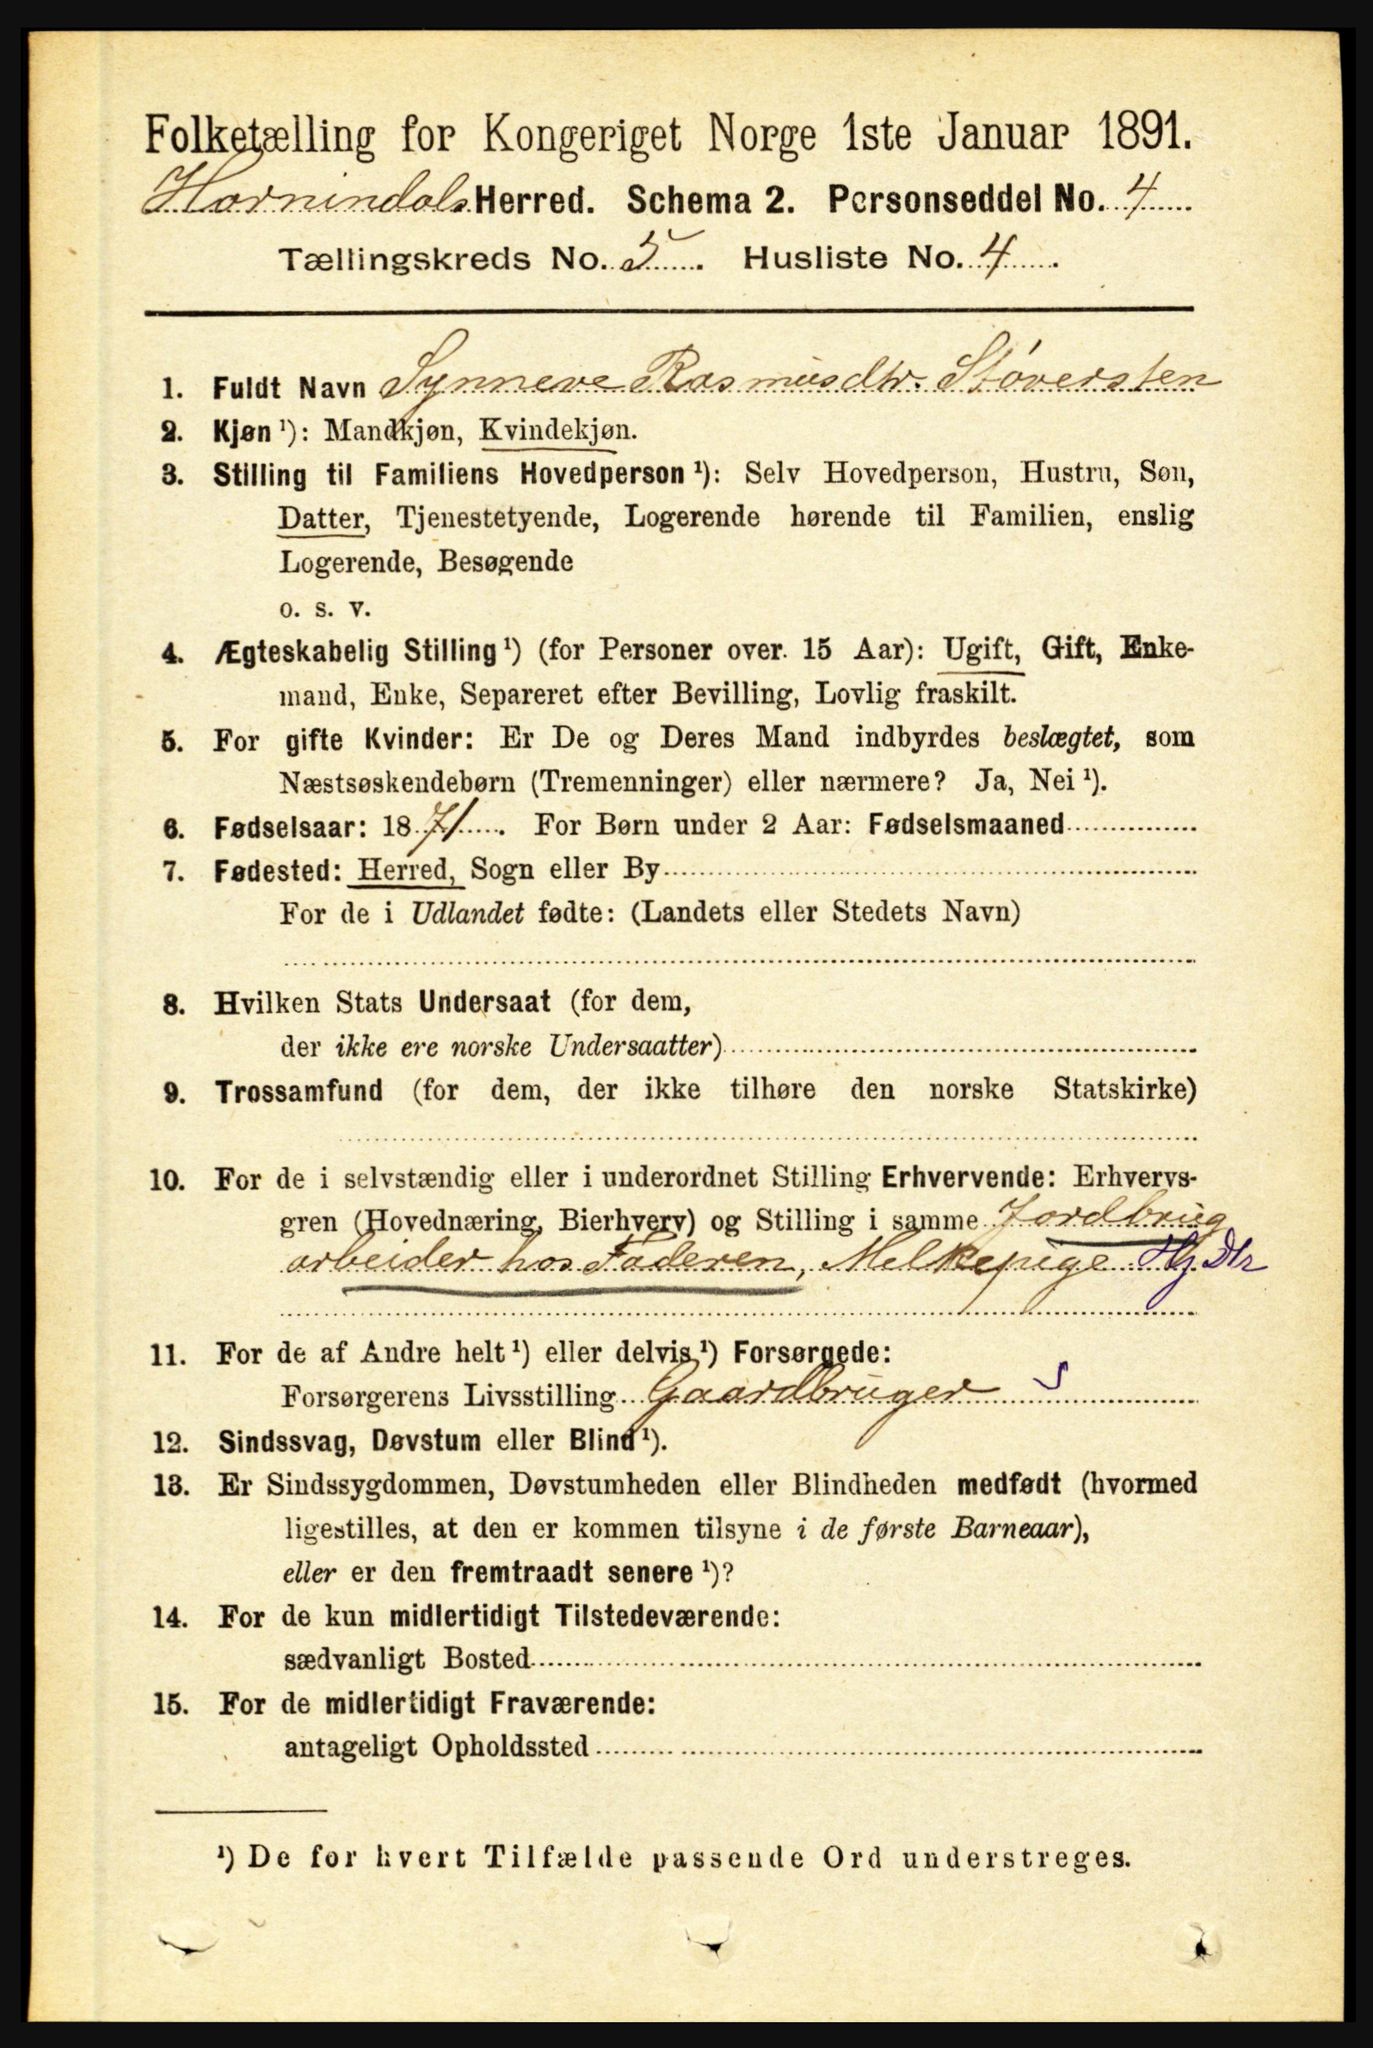 Folketælling for Kongeriget Norge 1ste Januar 1891.
Hornindals Herred. Schema 2. Personseddel No. 4
Tællingskreds No. 5. Husliste No. 4.
1. Fuldt Navn Synneve Rasmusdtr. Støversten
2. Kjøn ¹): Mandkjøn, Kvindekjøn.
3. Stilling til Familiens Hovedperson ¹): Selv Hovedperson, Hustru, Søn,
Datter, Tjenestetyende, Logerende hørende til Familien, enslig
Logerende, Besøgende
o. s. v.
4. Ægteskabelig Stilling ¹) (for Personer over 15 Aar): Ugift, Gift, Enke-
mand, Enke, Separeret efter Bevilling, Lovlig fraskilt.
5. For gifte Kvinder: Er De og Deres Mand indbyrdes beslægtet, som
Næstsøskendebørn (Tremenninger) eller nærmere? Ja, Nei ¹).
6. Fødselsaar: 1871. For Børn under 2 Aar: Fødselsmaaned
7. Fødested: Herred, Sogn eller By
For de i Udlandet fødte: (Landets eller Stedets Navn)
8. Hvilken Stats Undersaat (for dem,
der ikke ere norske Undersaatter)
9. Trossamfund (for dem, der ikke tilhøre den norske Statskirke)
10. For de i selvstændig eller i underordnet Stilling Erhvervende: Erhvervs-
gren (Hovednæring, Bierhverv) og Stilling i samme Jordbrug
arbeider hos Faderen, Melkepige Hj Dtr
11. For de af Andre helt ¹) eller delvis ¹) Forsørgede:
Forsørgerens Livsstilling Gaardbruger s
12. Sindssvag, Døvstum eller Blind ¹).
13. Er Sindssygdommen, Døvstumheden eller Blindheden medfødt (hvormed
ligestilles, at den er kommen tilsyne i de første Barneaar),
eller er den fremtraadt senere ¹)?
14. For de kun midlertidigt Tilstedeværende:
sædvanligt Bosted
15. For de midlertidigt Fraværende:
antageligt Opholdssted
¹) De for hvert Tilfælde passende Ord understreges.